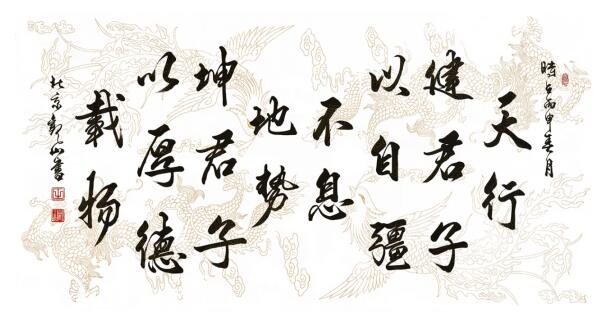 時在丙申春月
天行
健君子
以自彊
不息
地勢
坤君子
以厚德
載物
北京 山書